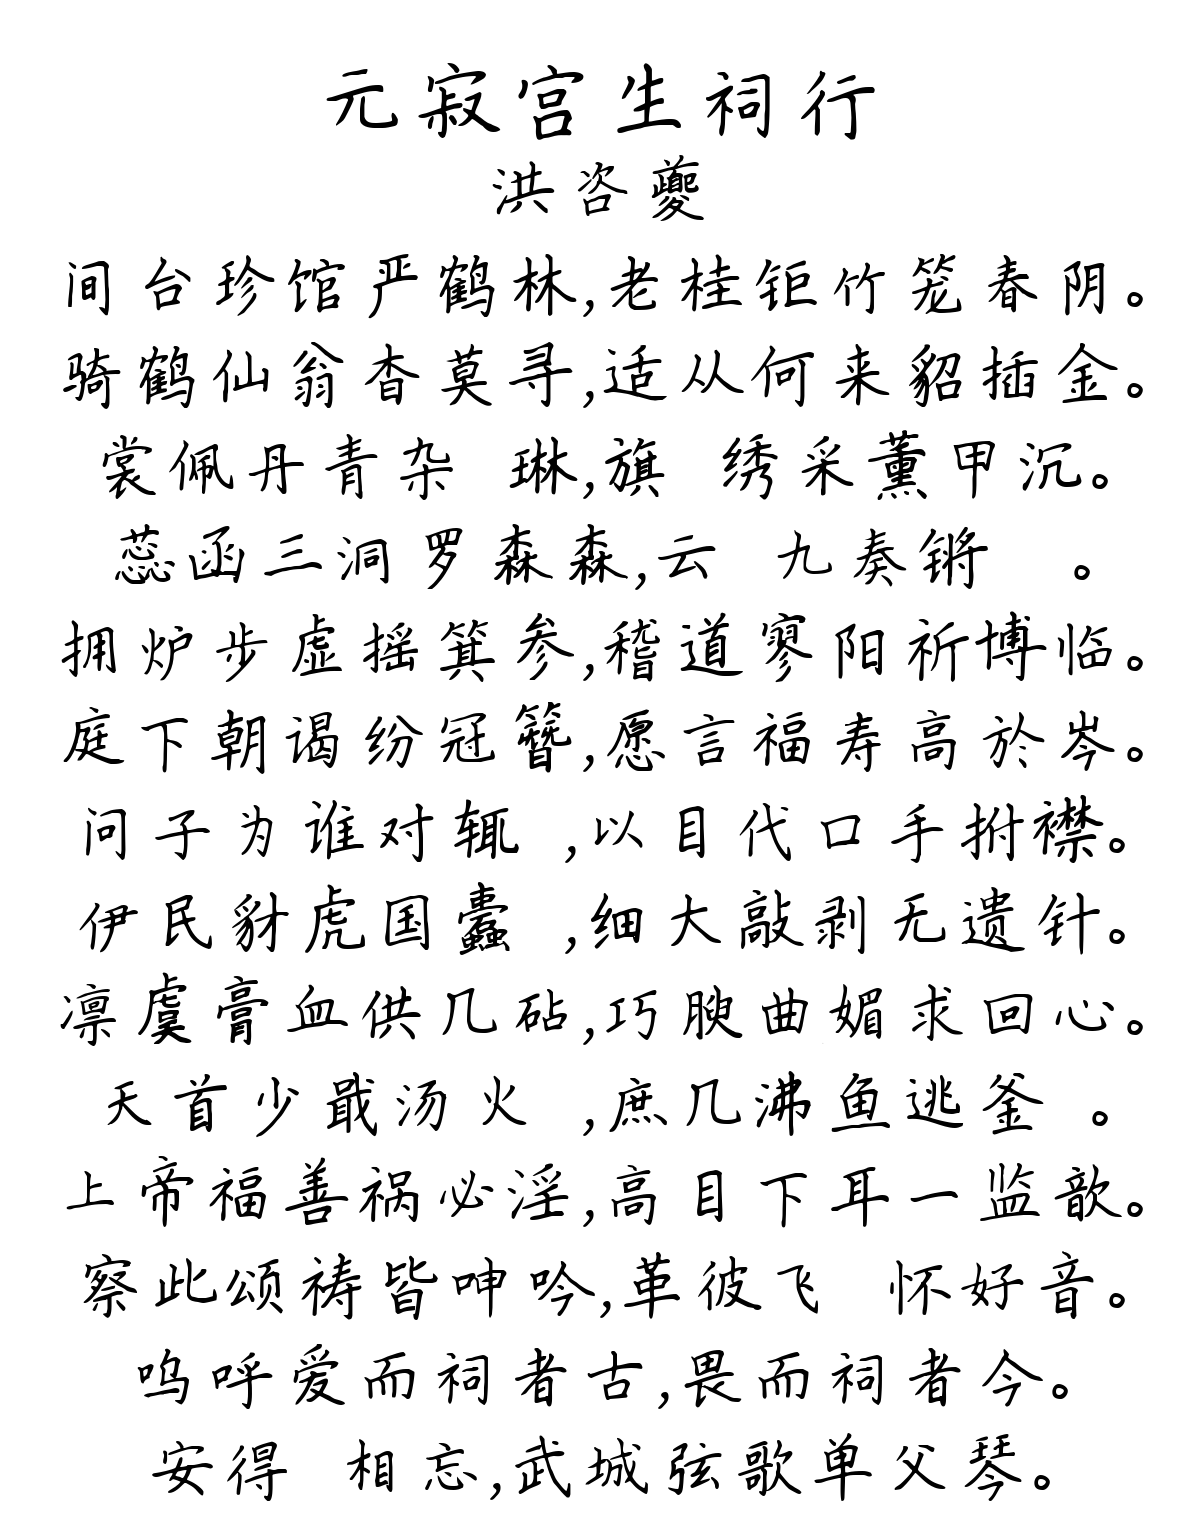 元寂宫生祠行
洪咨夔
间台珍馆严鹤林,老桂钜竹笼春阴。
骑鹤仙翁杳莫寻,适从何来貂插金。
裳佩丹青杂 琳,旗 绣采薰甲沉。
蕊函三洞罗森森,云 九奏锵 。
拥炉步虚摇箕参,稽道寥阳祈博临。
庭下朝谒纷冠簪,愿言福寿高於岑。
问子为谁对辄 ,以目代口手拊襟。
伊民豺虎国蠹 ,细大敲剥无遗针。
凛虞膏血供几砧,巧腴曲媚求回心。
天首少戢汤火 ,庶几沸鱼逃釜 。
上帝福善祸必淫,高目下耳一监歆。
察此颂祷皆呻吟,革彼飞 怀好音。
呜呼爱而祠者古,畏而祠者今。
安得 相忘,武城弦歌单父琴。